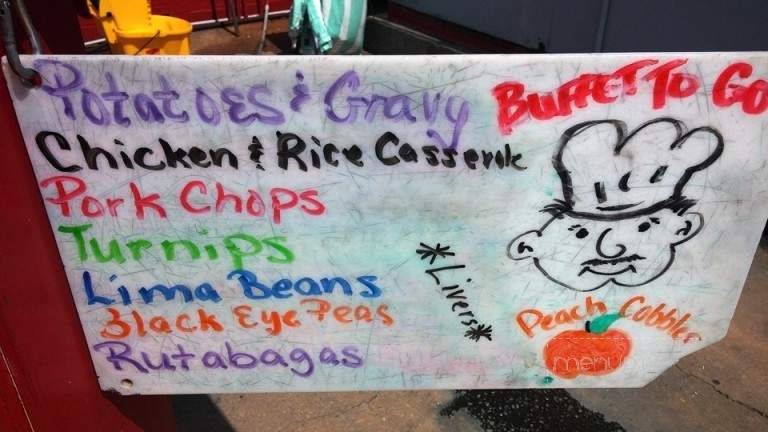 Potatoes & Gravy
Buffet To Go
Chicken & Rice Casserole
Pork Chops
Turnips
Lima Beans
Black Eye Peas
Rutabagas
*Livers*
Peach Cobbler
menu